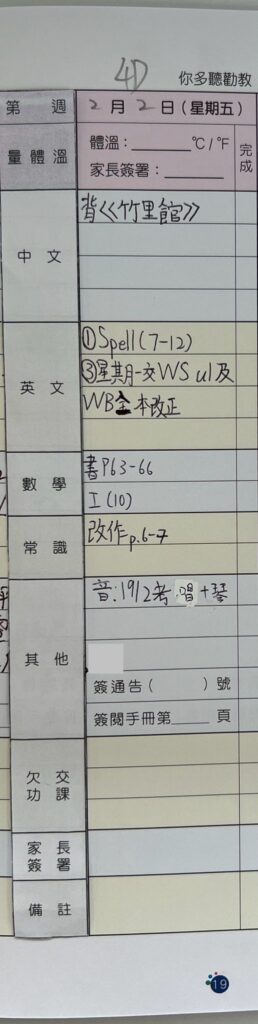 4D
你多聽勸教
第 週 2月2日(星期五)
量體溫 體溫：______℃/℉ 完成
家長簽署：______
中文 背<<竹里館>>
英文 ①Spell(7-12)
③星期一交WS u1及
WB全本改正
數學 書P63-66
I(10)
常識 改作p.6-7
其他 音:19/2考:唱+琴
簽通告( )號
簽閱手冊第____頁
欠交功課
家長簽署
備註
19